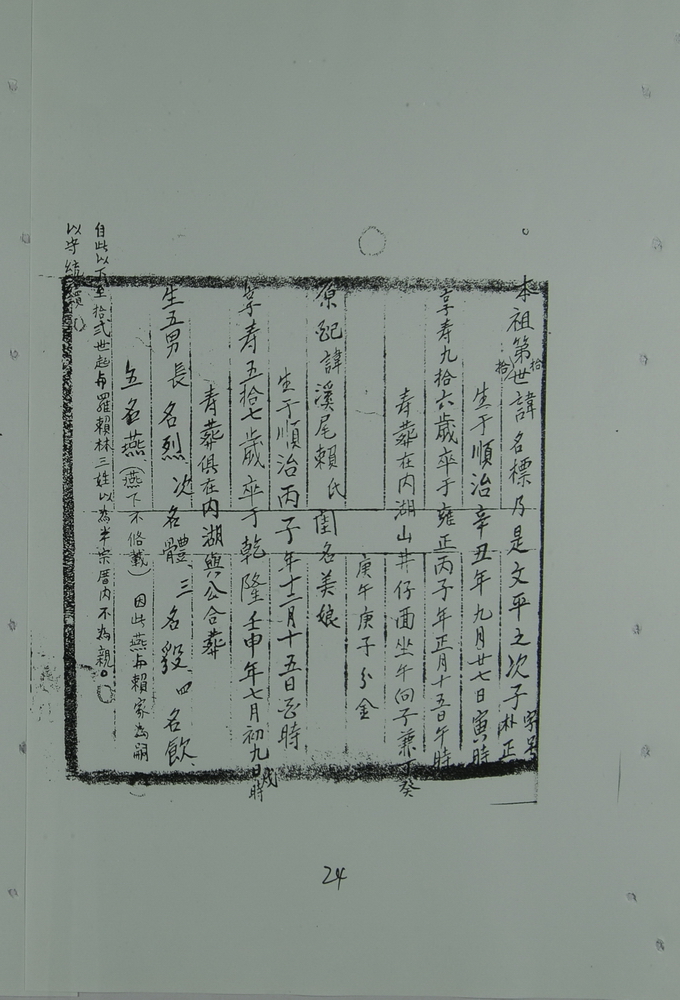 本祖第拾世諱名標乃是文平之次子字朴正
生于順治辛丑年九月廿七日寅時
享寿九拾六歲卒于雍正丙子年正月十五日午時
寿葬在内湖山井仔面坐午向子兼丁癸
庚午庚子分金
原配諱溪尾賴氏閨名美娘
生于順治丙子年十二月十五日
享寿五拾七歲卒于乾隆壬申年七月初九日戌時
寿葬俱在内湖與公合葬
生五男長名烈、次名體、三名毅、四名飲、
五名燕、(燕下不修載) 因此燕与賴家為嗣
自此以下至拾弍世起与羅賴林三姓以為半宗厝内不為親。
以守统
24